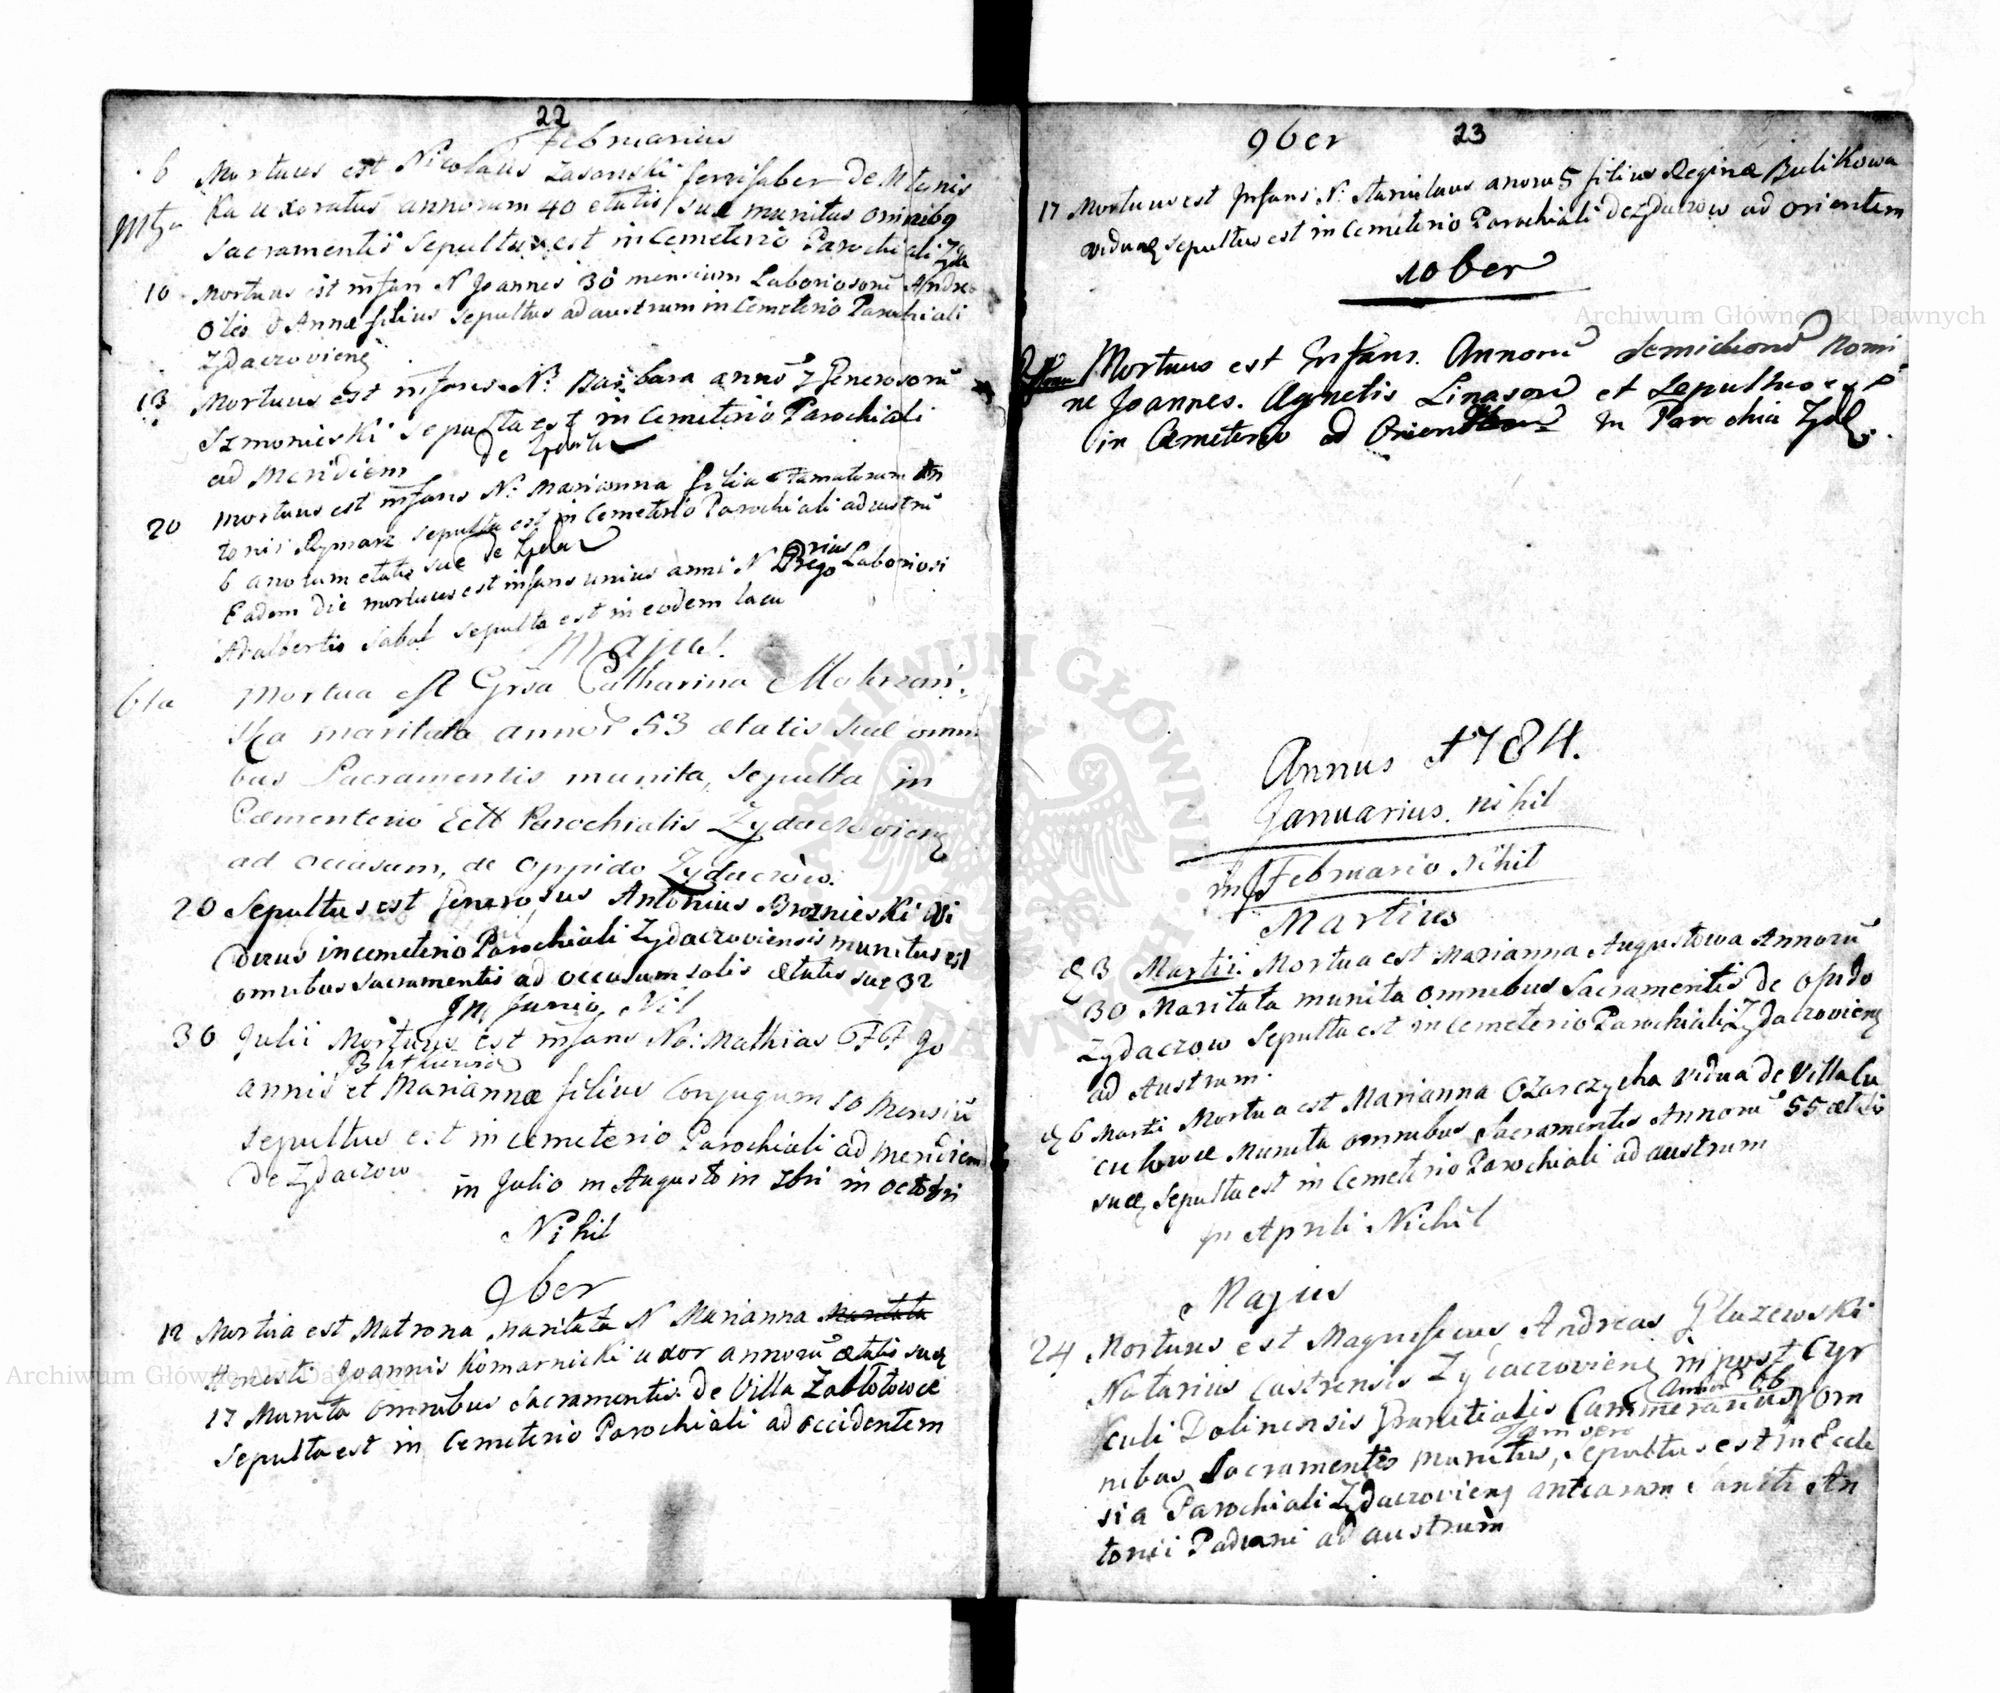 22
Februarius
6 Mortuus est Nicolaus Zasanski ferrifaber de
Ka uxoratus annorum 40 etatis sue munitus omnibq
Sacramentis Sepultus est in Cemeterio Parochiali Zyda
10 Mortuus est infans N Joannes 30 mensium Laboriosorū Andrea
Olio & Annæ filius sepultus ad austrum in Cemeterio Parochiali
Zydaczovienę
13 Mortuus est infans N: Barbara annō 7 Generosorū
Szmonieski sepulta est in Cemeterio Parochiali
ad Meridiem de
20 Mortuus est infans N: Marianna filia Famatorum An
tonii Rymarz sepulta est in Cemeterio Parochiali ad austrū
6 anorum etatis sue de
Eadem die mortuus est infans unius anni N Gregorius Laboriosi
Adalbertis Sabat sepulta est in eodem lacu
Majus.
6ta Mortua est Grsa Catharina Mokrzań-
ska maritata annor 53 ætatis suæ omni
bus Sacramentis munita, sepulta in
Cæmenterio Eccł Parochialis Zydaczovienę
ad occasum, de oppido Zydaczòw.
20 Sepultus est Generosus Antonius Broznieski Vi
duus in cemeterio Parochiali Zydaczoviensis munitus est
omnibus sacramentis ad occasum solis ætatis suæ 32
In Junio Nil
30 Julii Mortuus est infans No: Mathias F F Jo
annis et Mariannæ filius Conjugum 10 Mensiū
sepultus est in cemeterio Parochiali ad meridiem
De Zydaczow
in Julio in Augusto in 7bri in octobri
Nihil
9ber
12 Mortua est Matrona maritata N Marianna maritata
Honesti Joannis Komarnicki uxor annorū ætatis suę
17 Munita omnibus sacramentis de Villa Zabłotowce
Sepulta est in Cemeterio Parochiali ad occidentem
9ber 23
17 Mortuus est Infans N: Stanislaus anoru 5 filius Reginæ Bulikowa
viduæ sepultus est in Cemeterio Parochiali de Zydaczow ad orientem
10ber
Mortuus est Infans. Annorū Nomi
ne Joannes. Agnetis et Sepultus est
in Cemeterio ad in Parochia Zyd
Annus 1784.
Januarius. nihil
in Februario Nihil
Martius
3 Martii. Mortua est Marianna Augustowa Annorū
30 Maritata munita omnibus Sacramentis de Opido
Zydaczow Sepulta est in Cemeterio Parochiali Zydaczovienę
ad Austrum.
6 Marti Mortua est Marianna Ozarczycha vidua de Villa Cu
culowce Munita omnibus Sacramentis Annorū 55 ætatis
suæ Sepulta est in Cemeterio Parochiali ad austrum
In Aprili Nichil
Majus
24 Mortuus est Magnificus Andreas Głuzewski
Notarius Castrensis Zydaczovienę in post Cyr
culi Dolinensis Granitialis Cammerarius Annor 66 Om
nibus Sacramentis munitus, Sepultus est in Eccle
sia Parochiali Zydaczovienę ante aram Sancti An
tonii Paduani ad austrum
Archiwum Główne Akt Dawnych
Archiwum Główne Akt Dawnych
ARCHIWUM GŁÓWNE AKT DAWNYCH